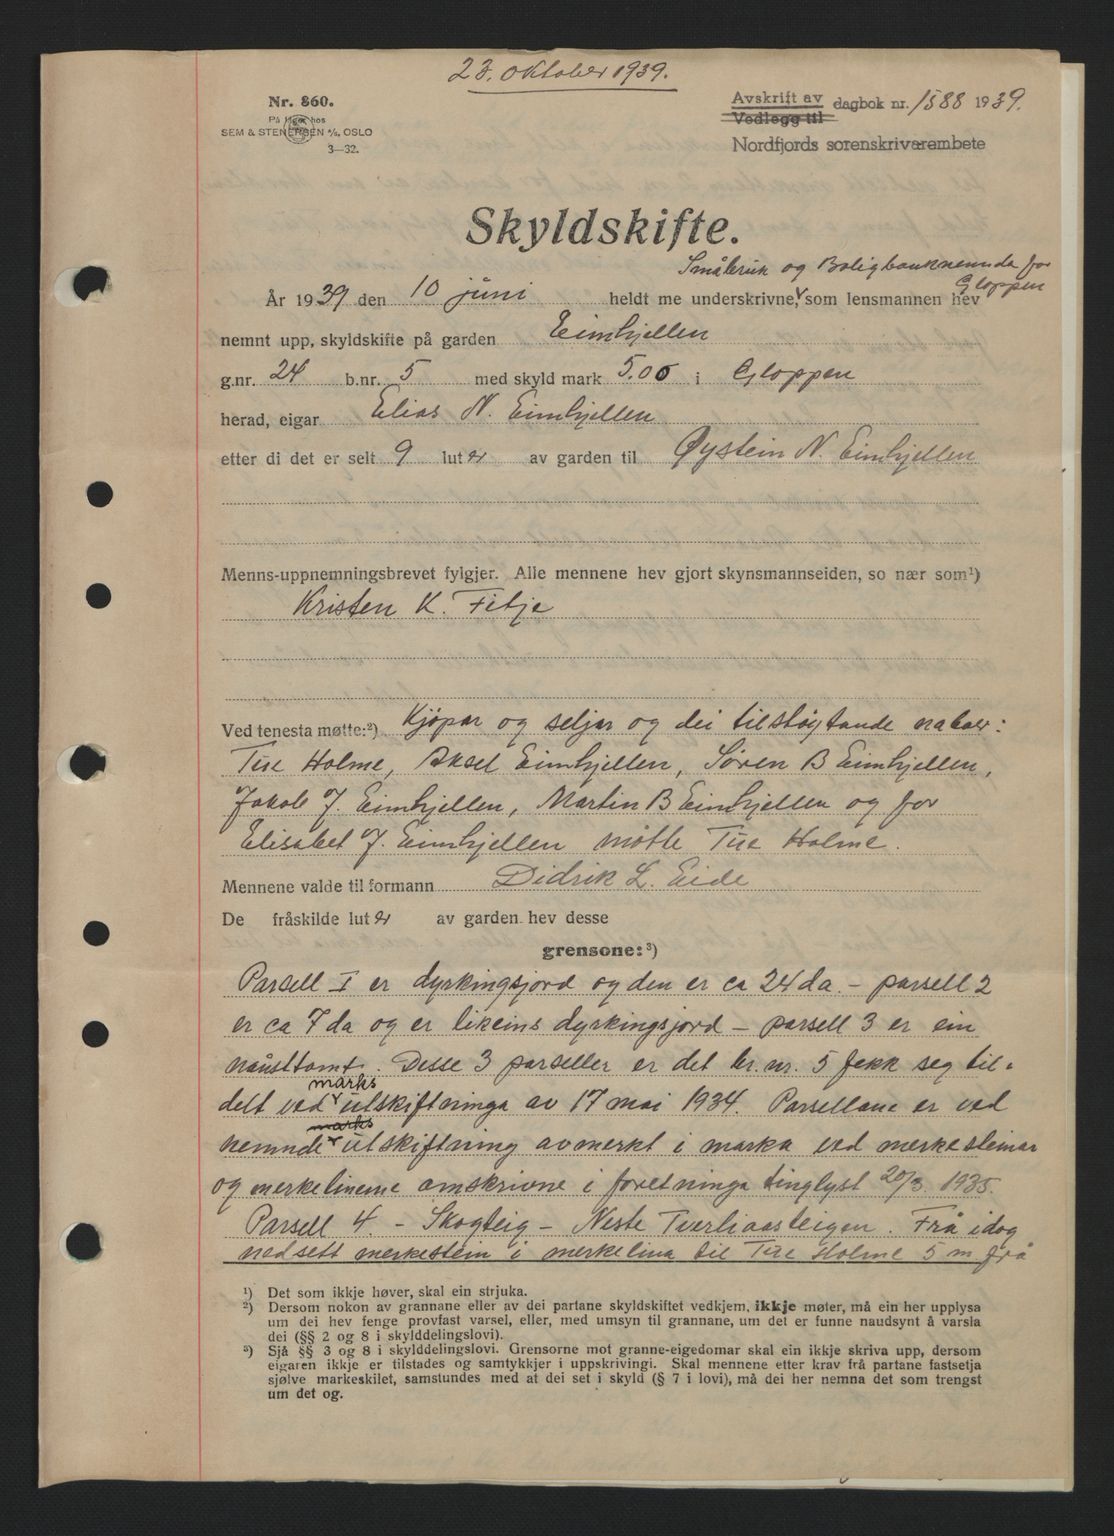 23. oktober 1939.
Nr. 860.
På lager hos
SEM & STENERSEN A/S, OSLO
3—32.
Avskrift av dagbok nr. 1588 1939.
Vedlegg til
Nordfjords sorenskrivarembete
Skyldskifte.
Småbruk og Boligbanknemnda for
Gloppen
År 1939 den 10 juni heldt me underskrivne, som lensmannen hev
nemnt upp, skyldskifte på garden Eimhjellen
g.nr. 24 b.nr. 5 med skyld mark 5.00 i Gloppen
herad, eigar Elias N. Eimhjellen
etter di det er selt 9 luter av garden til Øystein N. Eimhjellen
Menns-uppnemningsbrevet fylgjer. Alle mennene hev gjort skynsmannseiden, so nær som¹)
Kristen K. Fitje
Ved tenesta møtte:²) Kjöpar og seljar og dei tilstøytande naboer:
Tue Holme, Aksel Eimhjellen, Søren B Eimhjellen,
Jakob J. Eimhjellen, Martin B Eimhjellen og for
Elisabet J. Eimhjellen møtte Tue Holme.
Mennene valde til formann Didrik L. Eide
De fråskilde luter av garden hev desse
grensone:³)
Parsell I er dyrkingsjord og den er ca 24 da. – parsell 2
er ca 7 da og er likeins dyrkingsjord – parsell 3 er ein
nausttomt. Desse 3 parseller er det br. nr. 5 fekk seg til-
marks
delt ved utskiftninga av 17 mai 1934. Parsellane er ved
marks
nemnde utskiftning avmerkt i marka ved merkesteinar
og merkelinerne omskrivne i forretninga tinglyst 20/3 1935.
Parsell 4. – Skogteig – Neste Tverliaasteigen. Frå idag
nedsett merkestein i merkelina til Tue Holme 5 m frå
¹) Det som ikkje høver, skal ein strjuka.
²) Dersom nokon av grannane eller av dei partane skyldskiftet vedkjem, ikkje møter, må ein her upplysa
um dei hev fenge provfast varsel, eller, med umsyn til grannane, um det er funne naudsynt å varsla
dei (§§ 2 og 8 i skylddelingslovi).
³) Sjå §§ 3 og 8 i skylddelingslovi. Grensorne mot granne-eigedomar skal ein ikkje skriva upp, dersom
eigaren ikkje er tilstades og samtykkjer i uppskrivingi. Skal mennene etter krav frå partane fastsetja
sjølve markeskilet, samstundes med at dei set i skyld (§ 7 i lovi), må dei her nemna det som trengst
um det og.